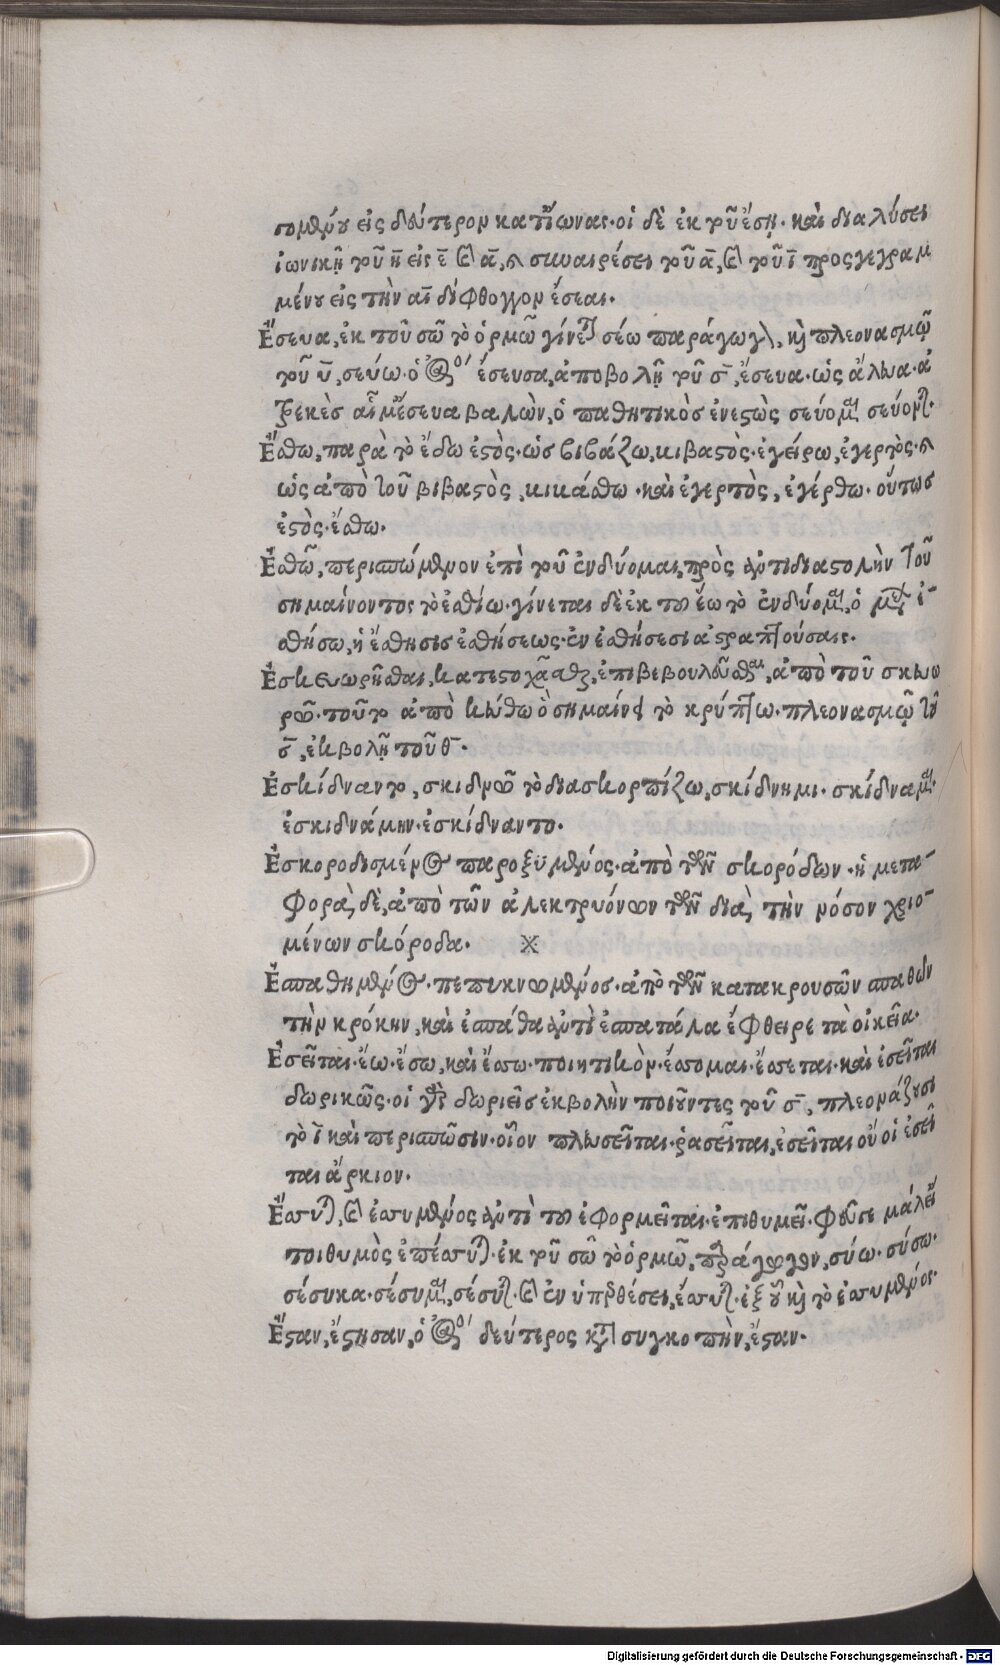 σομένου εἰς δεύτερον κατ' ἴωνας· οἱ δὲ ἐκ τοῦ ἔσῃ· καὶ διαλύσει
ἰωνικῇ τοῦ η̄ εἰς ε̄ καὶ ᾱ, καὶ συναιρέσει τοῦ ᾱ, καὶ τοῦ ῑ προςγεγραμ
μένου εἰς τὴν αῑ δίφθογγον ἔσεαι.
Ἔσευα, ἐκ τοῦ σῶ τὸ ὁρμῶ γίνεται σέω παράγωγον, καὶ πλεονασμῷ
τοῦ ῡ, σεύω· ὁ ἀόριστος ἔσευσα, ἀποβολῇ τοῦ σ̄, ἔσευα· ὡς ἄλευα· ἀ
τρεκὲσ αἷμ' ἔσευα βαλὼν, ὁ παθητικὸσ ἐνεστὼς σεύομαι σεύονται.
Ἔσθω, παρὰ τὸ ἔδω ἐστὸς· ὡσ βιβάζω, κιβαστὸς· ἐγείρω, ἐγερτὸς· καὶ
ὡς ἀπὸ τοῦ βιβαστὸς, κικάσθω· καὶ ἐγερτὸς, ἐγέρθω· οὕτωσ
ἐστὸς· ἔσθω.
Ἐσθῶ, περισπώμενον ἐπὶ τοῦ ἐνδύομαι, πρὸς ἀντιδιαστολὴν τοῦ
σημαίνοντος τὸ ἐσθίω· γίνεται δὲ ἐκ τοῦ ἕω τὸ ἐνδύομαι, ὁ μέλλων ἐ-
σθήσω, ἡ ἔσθησισ ἐσθήσεως· ἐν ἐσθήσεσι ἀστραπτούσαις.
Ἐσκευωρῆσθαι, κατεστοχᾶσθαι, ἐπιβεβουλεῦσθαι, ἀπὸ τοῦ σκευω
ρῶ· τοῦτο ἀπὸ κεύθω ὃ σημαίνει τὸ κρύπτω· πλεονασμῷ τοῦ
σ̄, ἐκβολῇ τοῦ θ̄.
Ἐσκίδναντο, σκιδνῶ τὸ διασκορπίζω, σκίδνημι· σκίδναμαι·
ἐσκιδνάμην· ἐσκίδναντο.
Ἐσκοροδισμένος παροξυμένος· ἀπὸ τῶν σκορόδων· ἡ μετα-
φορὰ δὲ, ἀπὸ τῶν ἀλεκτρυόνων τῶν διὰ τὴν νόσον χριο-
μένων σκόροδα. ※
Ἐσπαθημένος· πεπυκνωμένοσ· ἀπὸ τῶν κατακρουσῶν σπαθῶν
τὴν κρόκην, καὶ ἐσπάθα ἀντὶ ἐσπατάλα ἔφθειρε τὰ οἰκεῖα.
Ἐσεῖται· ἕω· ἔσω, καὶ ἔσσω· ποιητικὸν· ἔσσομαι· ἔσσεται· καὶ ἐσεῖται
δωρικῶς· οἱ γὰρ δωριεῖσ ἐκβολὴν ποιοῦντες τοῦ σ̄, πλεονάζουσι
τὸ ῑ καὶ περισπῶσιν· οἷον πλευσεῖται· ῥασεῖται, ἐσεῖται οὔ οἱ ἐσεῖ
ται ἄρκιον.
Ἔσσυται, καὶ ἐσσυμένος ἀντὶ τοῦ ἐφορμεῖται· ἐπιθυμεῖ· φεῦσι μάλ' εἴ
τοι θυμὸς ἐπέσσυται· ἐκ τοῦ σῶ τὸ ὁρμῶ, παράγωγον, σύω· σύσω·
σέσυκα· σέσυμαι, σέσυται· καὶ ἐν ὑπερθέσει, ἔσσυται· ἐξ οὗ καὶ τὸ ἐσσυμένος·
Ἔσταν, ἔστησαν, ὁ ἀόριστος δεύτερος κατὰ συγκοπὴν, ἔσταν.
Digitalisierung gefördert durch die Deutsche Forschungsgemeinschaft - DFG